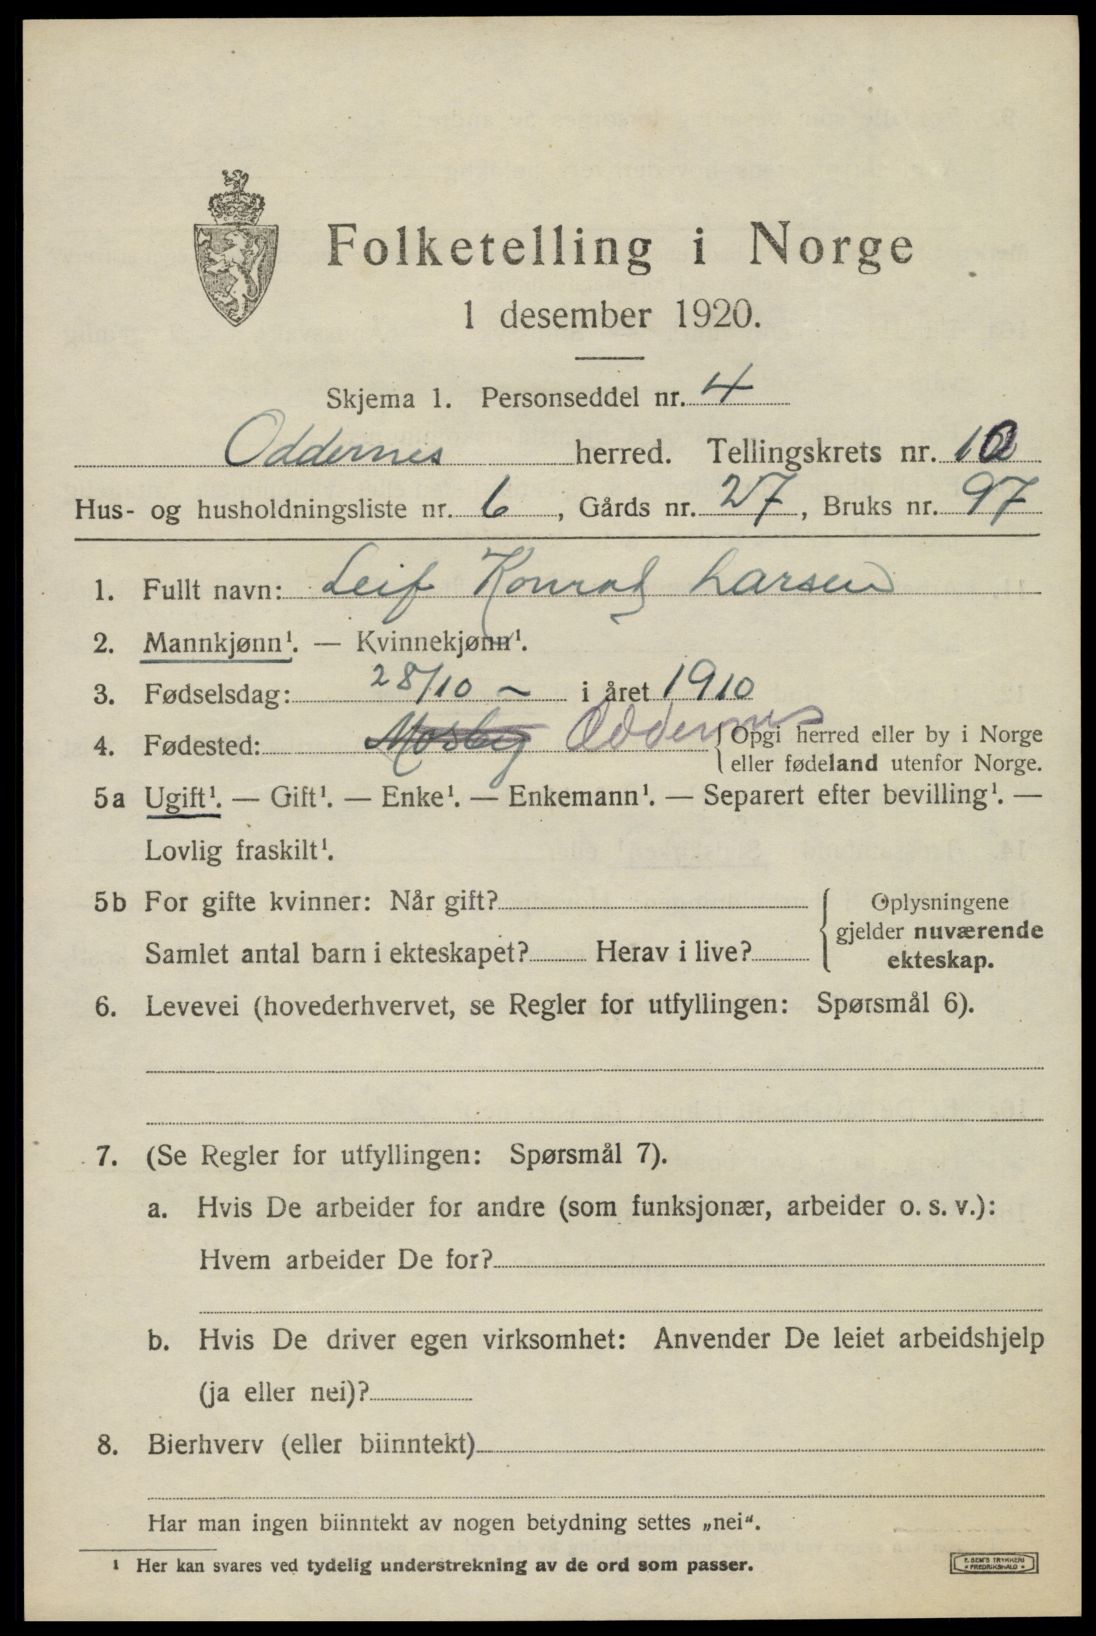 Folketelling i Norge
1 desember 1920.
Skjema 1. Personseddel nr. 4
Oddernes herred. Tellingskrets nr. 10
Hus- og husholdningsliste nr. 6, Gårds nr. 27, Bruks nr. 97
1. Fullt navn: Leif Konrad Larsen
2. Mannkjønn¹. — Kvinnekjønn¹.
3. Fødselsdag: 28/10 - i året 1910
4. Fødested: Mosby Oddernes {Opgi herred eller by i Norge
eller fødeland utenfor Norge.
5a Ugift¹. — Gift¹. — Enke¹. — Enkemann¹. — Separert efter bevilling¹. —
Lovlig fraskilt¹.
5b For gifte kvinner: Når gift? { Oplysningene
gjelder nuværende
Samlet antal barn i ekteskapet? Herav i live? ekteskap.
6. Levevei (hovederhvervet, se Regler for utfyllingen: Spørsmål 6).
7. (Se Regler for utfyllingen: Spørsmål 7).
a. Hvis De arbeider for andre (som funksjonær, arbeider o. s. v.):
Hvem arbeider De for?
b. Hvis De driver egen virksomhet: Anvender De leiet arbeidshjelp
(ja eller nei)?
8. Bierhverv (eller biinntekt)
Har man ingen biinntekt av nogen betydning settes „nei“.
¹ Her kan svares ved tydelig understrekning av de ord som passer.
E. SEM'S TRYKKERI
FREDRIKSHALD